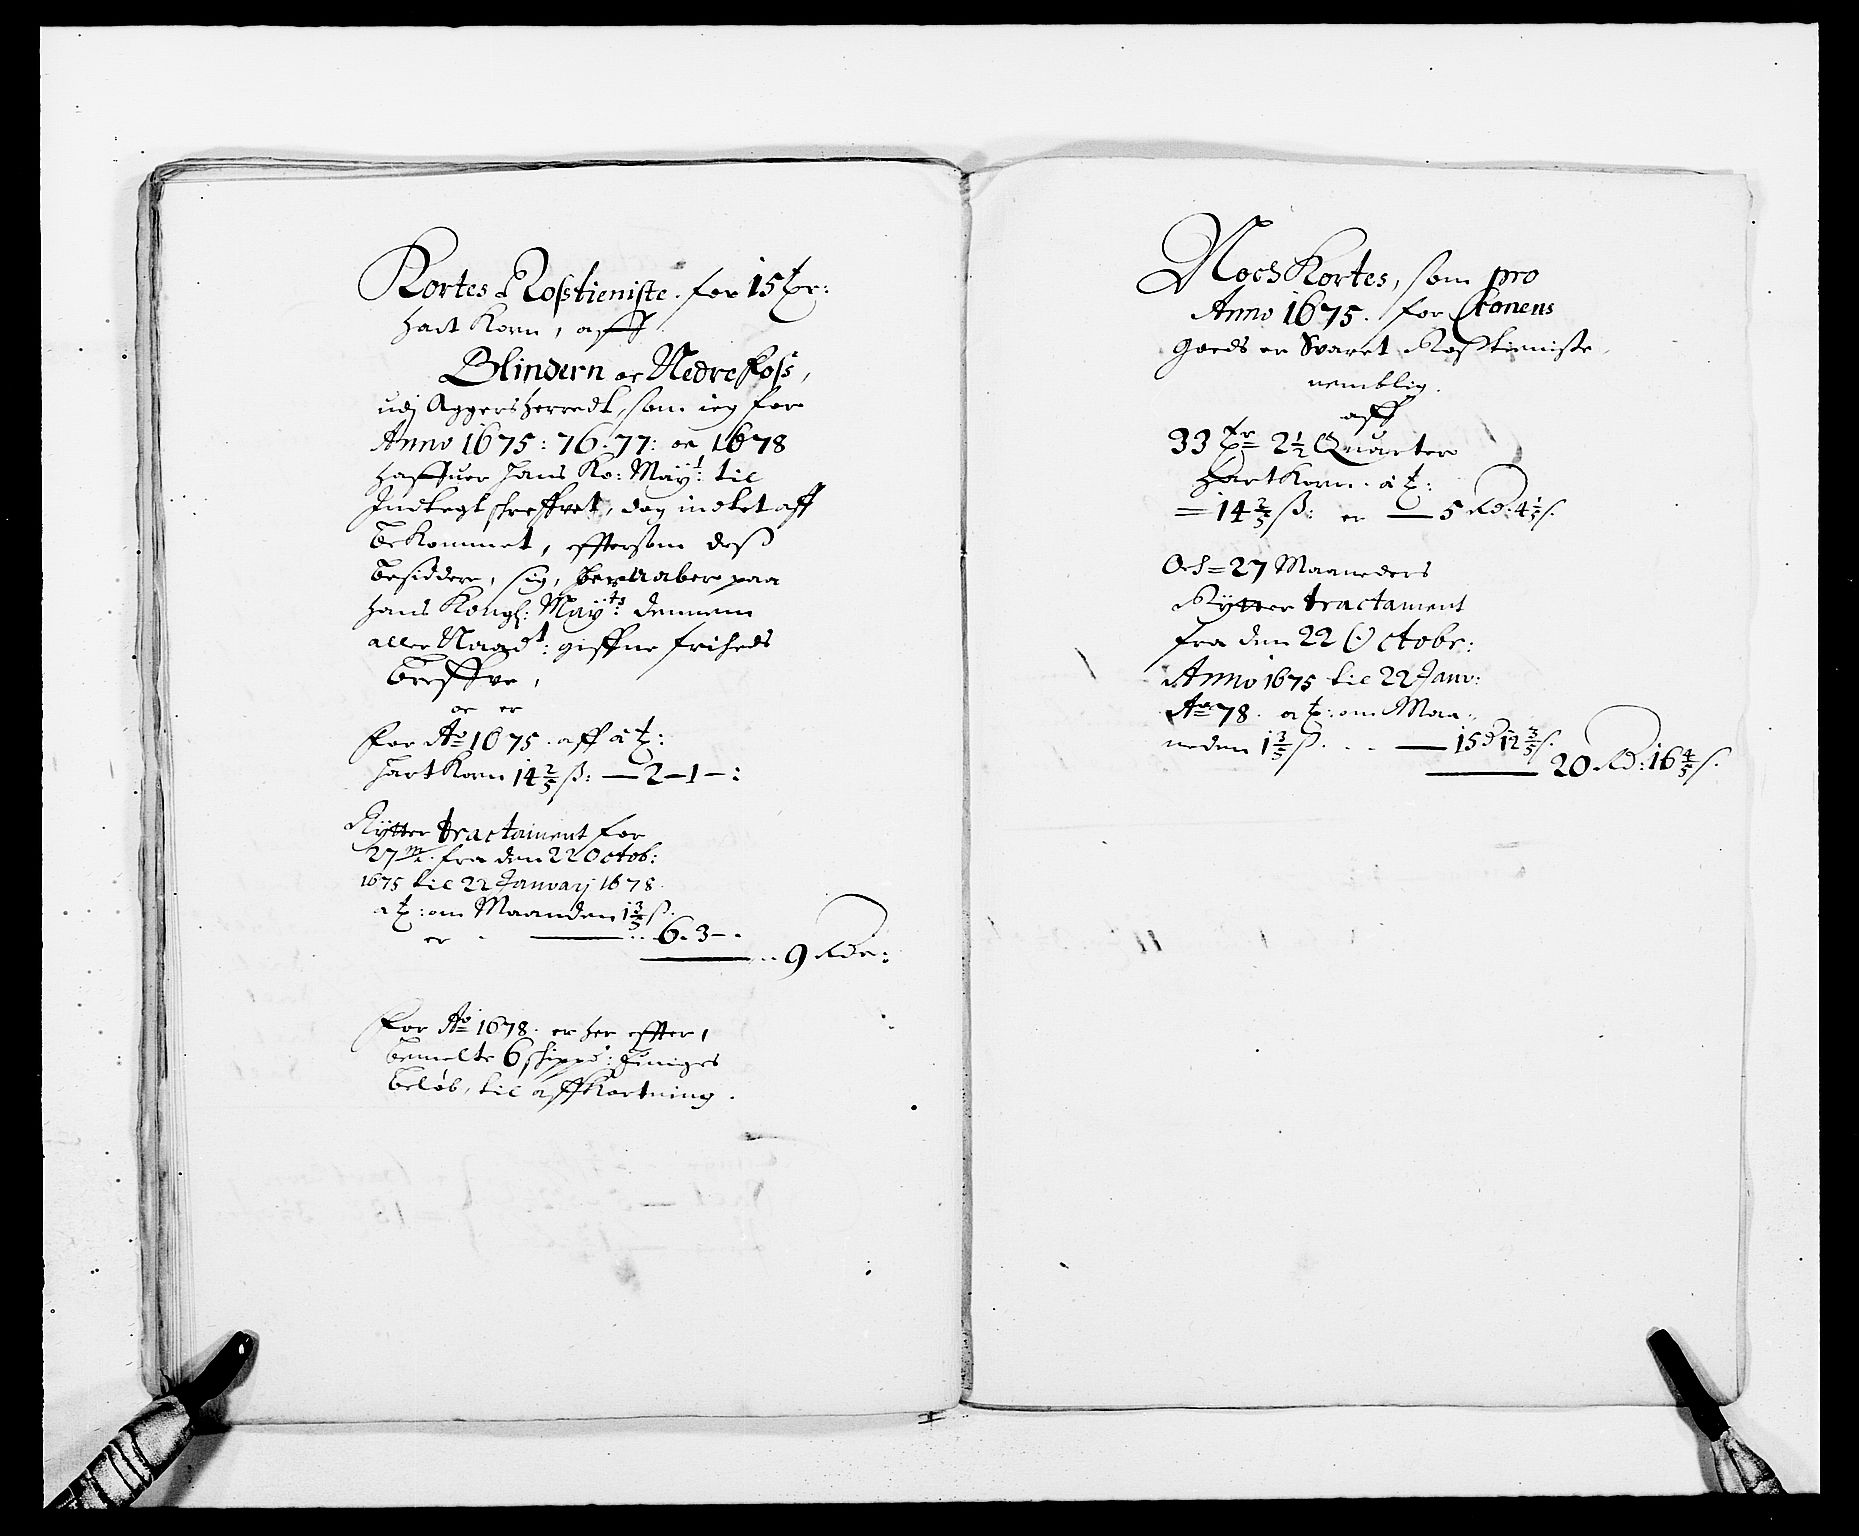 Kortes Rosstieniste for 15 tr:
hart Korn, aff
Blindern oc Nedrefoss,
udj Aggersherredt, som ieg for
Anno 1675: 76. 77: oc 1678
haffuer hans Ko: Mayt: til
Indtegt schreffvet, dog indtet aff
bekommet, efftersom dess
besiddere, sig, beraaber paa
hans Kongl: Mayts: dennem
aller Naadt: giffne friheds
breffve,
oc er
for Ao 1675. aff à t:
hart Korn 14 2/5 ß: — 2–1–:
Rytter tractament for
27 m. fra den 22 Octob:
1675 til 22 Januarj 1678.
a t: om Maanden 1 3/5 ß.
er — .. 6. 3–.
.. 9 Rdr:
for Ao 1678. er her effter,
bemelte 6 schippd:
beløb, til affkortning.
Noch Kortes, som pro
Anno 1675. for Cronens
goeds er Svaret Rosstieniste,
nemblig.
aff
33 tr 2 1/2 Quarter
Hartkorn. à t:
= 14 2/5 ß: er — 5 Rd. 4 1/5 s.
Och = 27 Maaneders
Rytter tractament
fra den 22 Octobr:
Anno 1675 til 22 Janv:
Ao 78. a t: om Maa-
neden 1 3/5 ß. .. — 15 d 12 3/5 s.
20 Rd: 16 4/5 s.